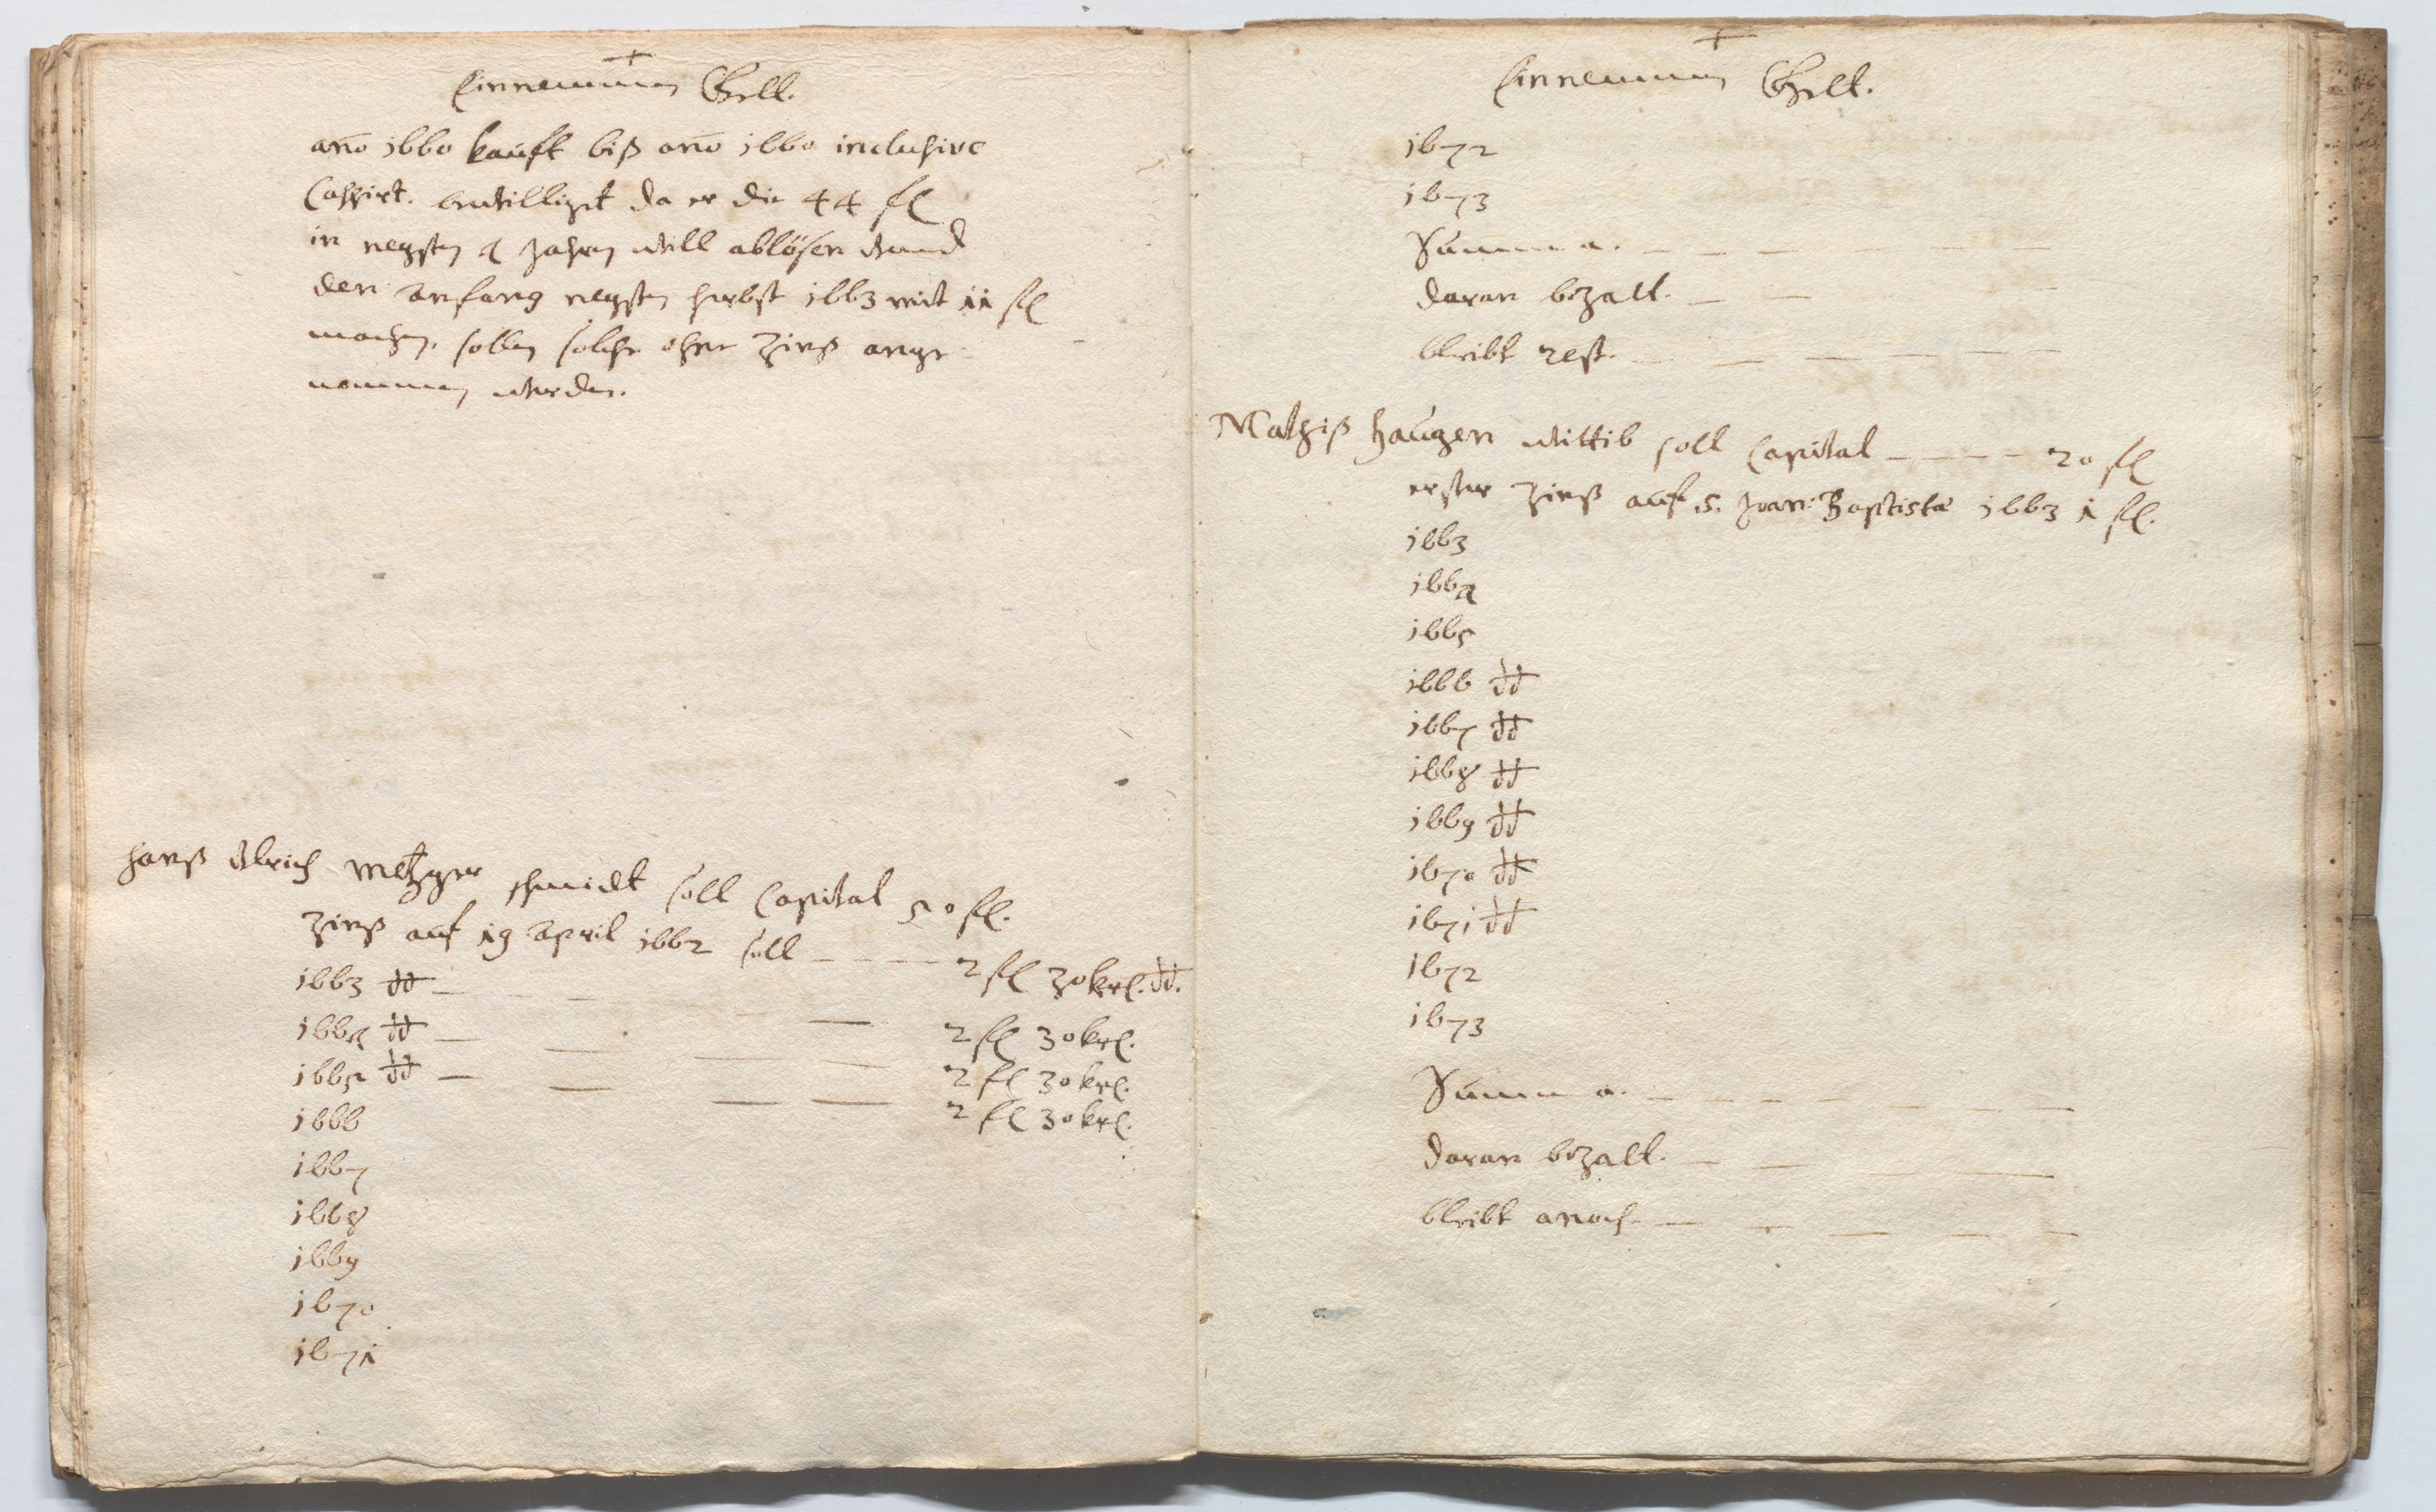 Einnemmen Gelt.
ano 1660 kauft biß ano 1660 inclusive
Cassirt. bewilliget da er die 44 fl
in negsten 4 Jahren will ablösen vnnd
den anfang negsten herbst 1663 mit 11 fl
machen, sollen solche ohne Zinß ange
nommen werden.
Hanß Vlrich Metzger schmidt soll Capital 50 fl.
Zinß auf 19 April 1662 soll — — — — 2 fl 30 krl. dd.
1663 dd — — — — 2 fl 30 krl.
1664 dd — — — — 2 fl 30 krl.
1665 dd — — — — 2 fl 30 krl.
1666
1667
1668
1669
1670
1671
Einnemmen Gelt.
1672
1673
Summa. — — — — —
daran bezalt. — — —
bleibt rest. — — — — —
Mathiß Haugen wittib soll Capital — — — — 20 fl
erster Zinß auf S. Joan: Baptistae 1663 1 fl.
1663
1664
1665
1666 dd
1667 dd
1668 dd
1669 dd
1670 dd
1671 dd
1672
1673
Summa. — — — — — — —
daran bezalt. — — — —
bleibt anoch — — — — —